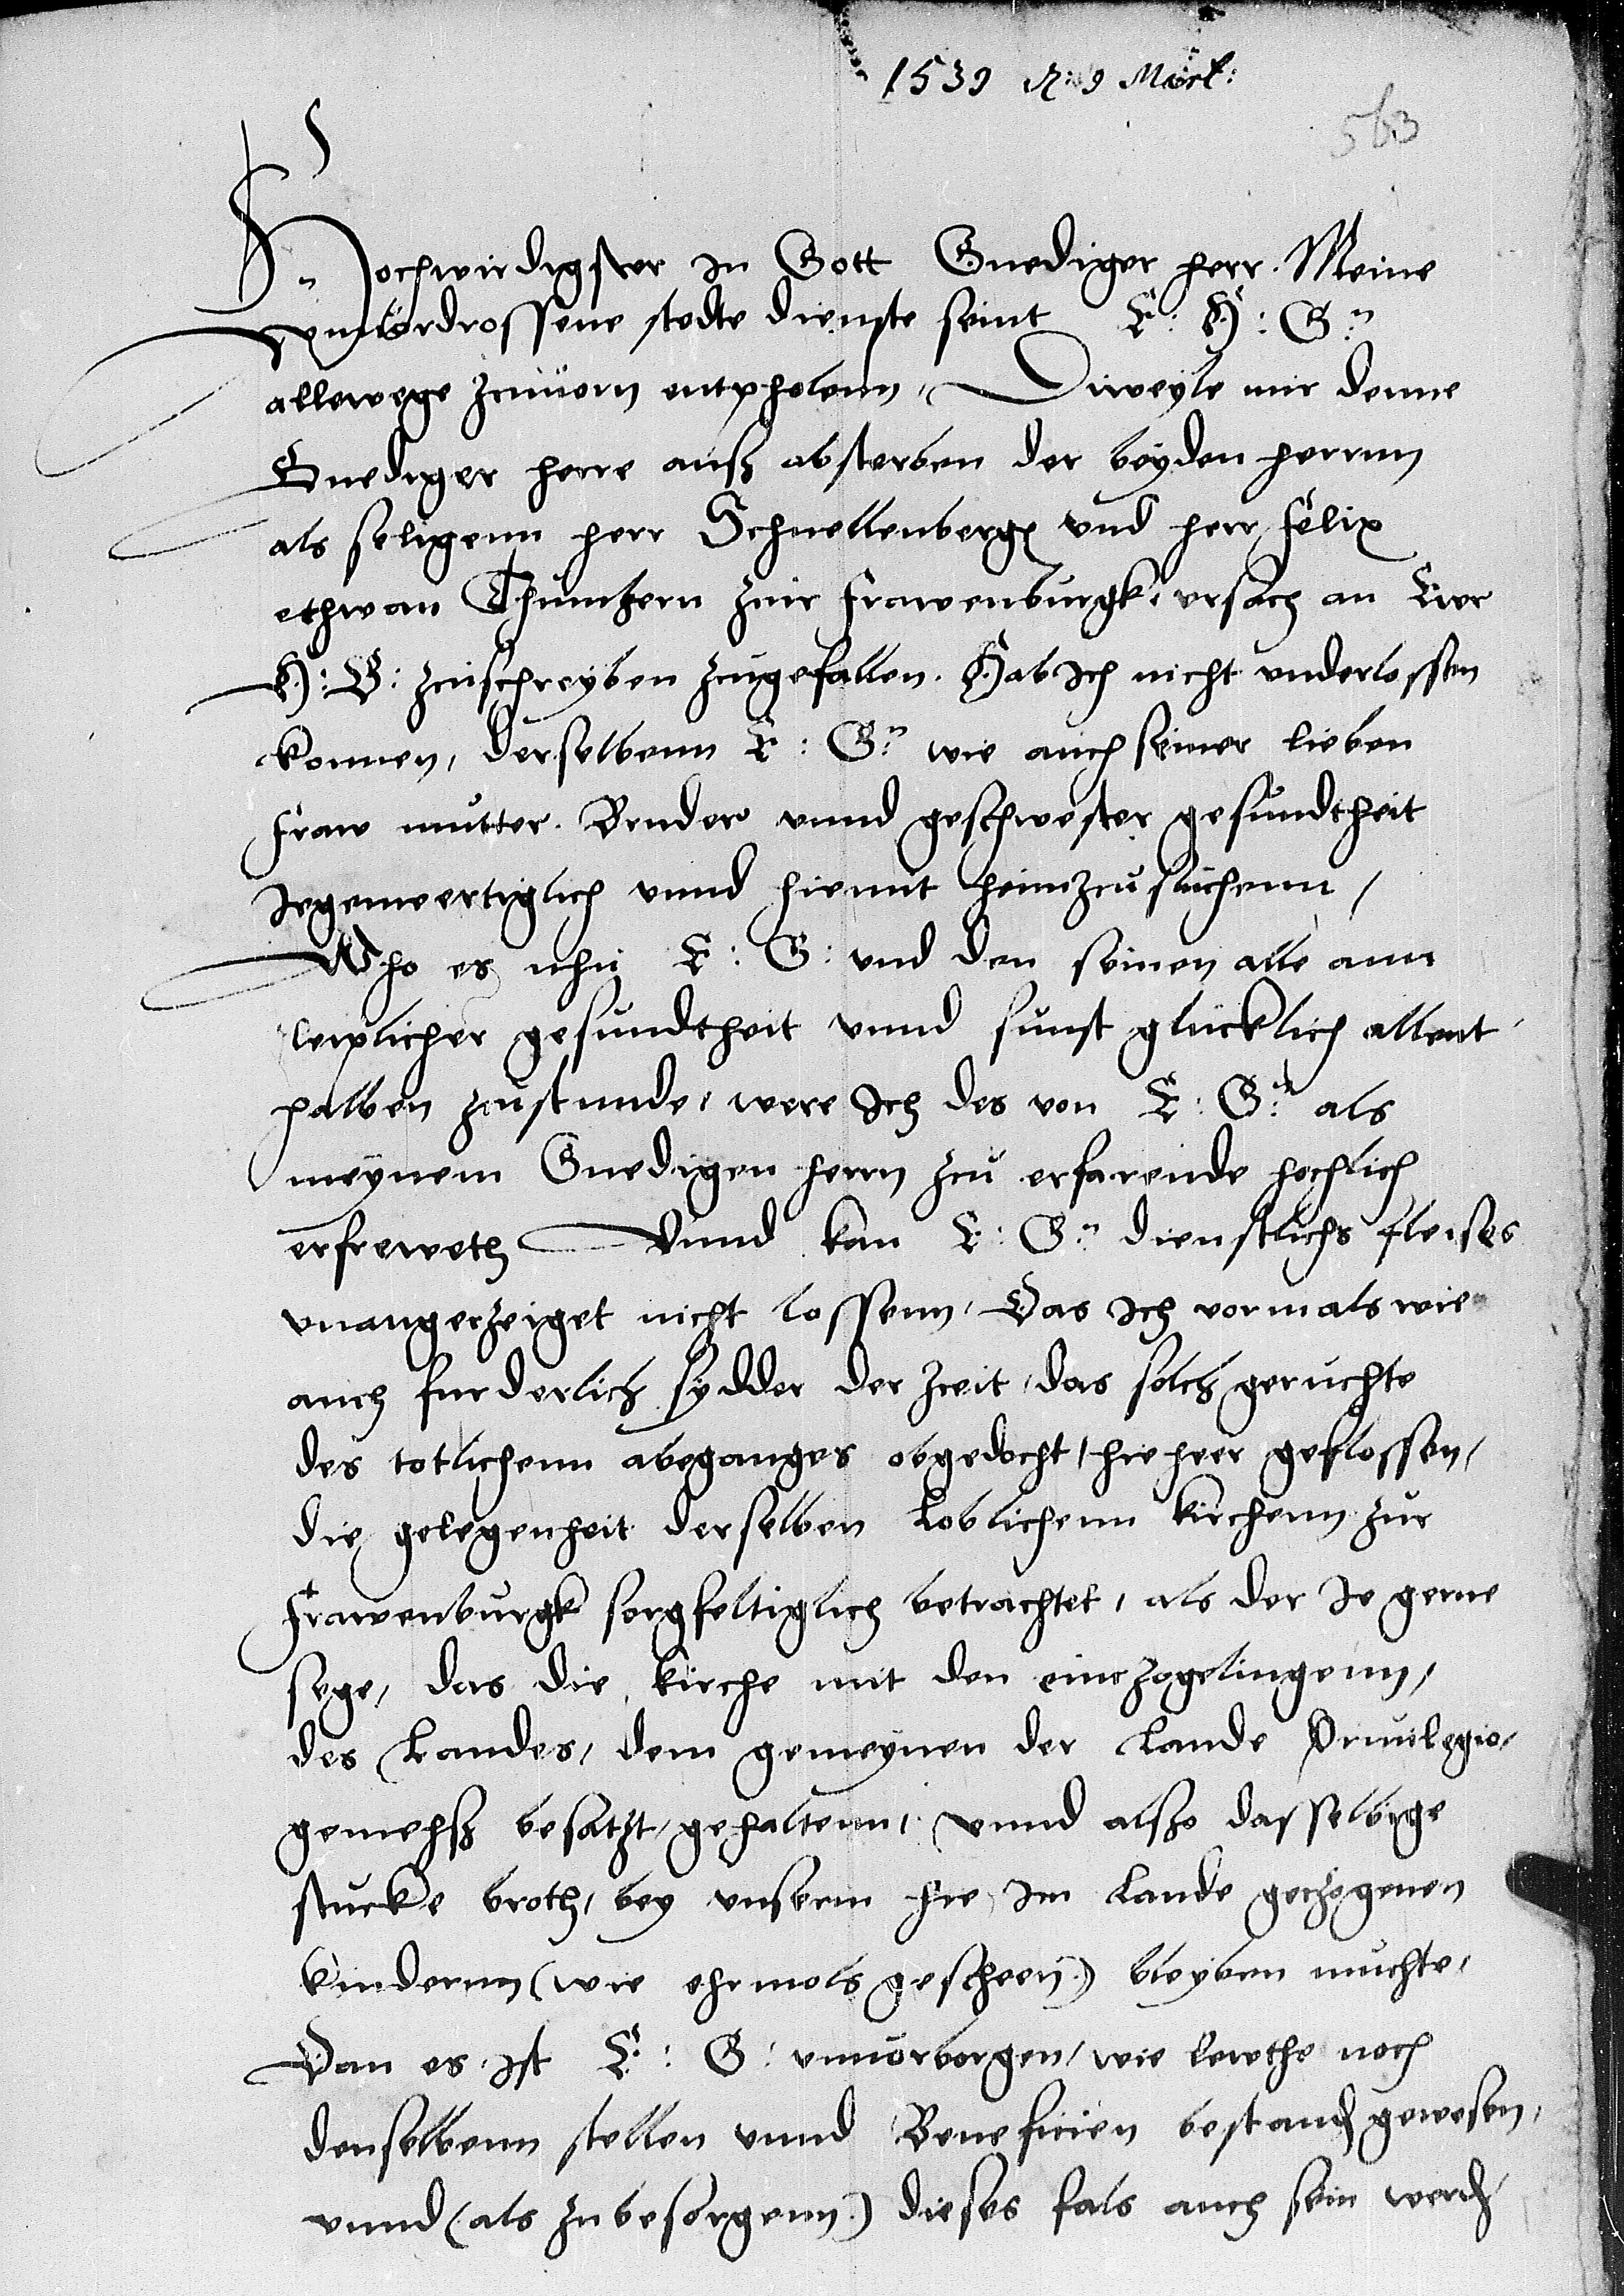 1539 d: 9 Mart:
563
Hochwirdigster in Gott Gnediger herr. Meine
vnuordrossene stedte dienste seint E: H: G:n
allewege zcuuorn entpholenn, Diweyle mir denne
Gnediger herre auß absterben der beyden herrnn
als seligenn herr Schnellenbergk vnd herr felix
ethwan Thumhern zcur frawenburgk, vrsach an Ewr
H: G: zcuschreyben zcugefallen. Hab ich nicht vnderlossen
konnen, derselbenn E: G:n wie auch seiner lieben
fraw mutter. Bruder vnnd geschwester gesundtheit
Jegenwertiglich vnnd hiemit heimzcusuchenn,
Who es nhu E: G: vnd den seinen alle ann
leiplicher gesundtheit vnnd sunst glucklich allent
halben zcustunde, were ich des von E: G:n als
meynem Gnedigen herrn zcu erfarende hochlich
erfreweth Vnnd kan E: G:n dienstlichs fleises
vnangezeiget nicht lossenn, Das ich vormals wie
auch furderlich sydder der zceit, das solch geruchte
des totlichenn abeganges obgedocht, hieheer geflossen,
die gelegenheit derselben loblichenn kirchenn zur
frawenburgk sorgfeltiglich betrachtet, als der Je gerne
sege, das die kirche mit den einezogelingenn,
des Landes, dem gemeynen der Lande Priuilegio,
gemehß besatzt, gehaltenn, vnnd alßo dasselbige
stucke broth, bey vnsernn hie im Lande geczogenen
kindernn (wie ehrmols gescheen) bleyben muchte,
Dan es ist E: G: vnuorborgen, wie lewthe noch
denselbenn stellen vnnd Beneficien bestandt gewesen,
vnnd (als zubesorgenn) dieses fals auch sein werdt